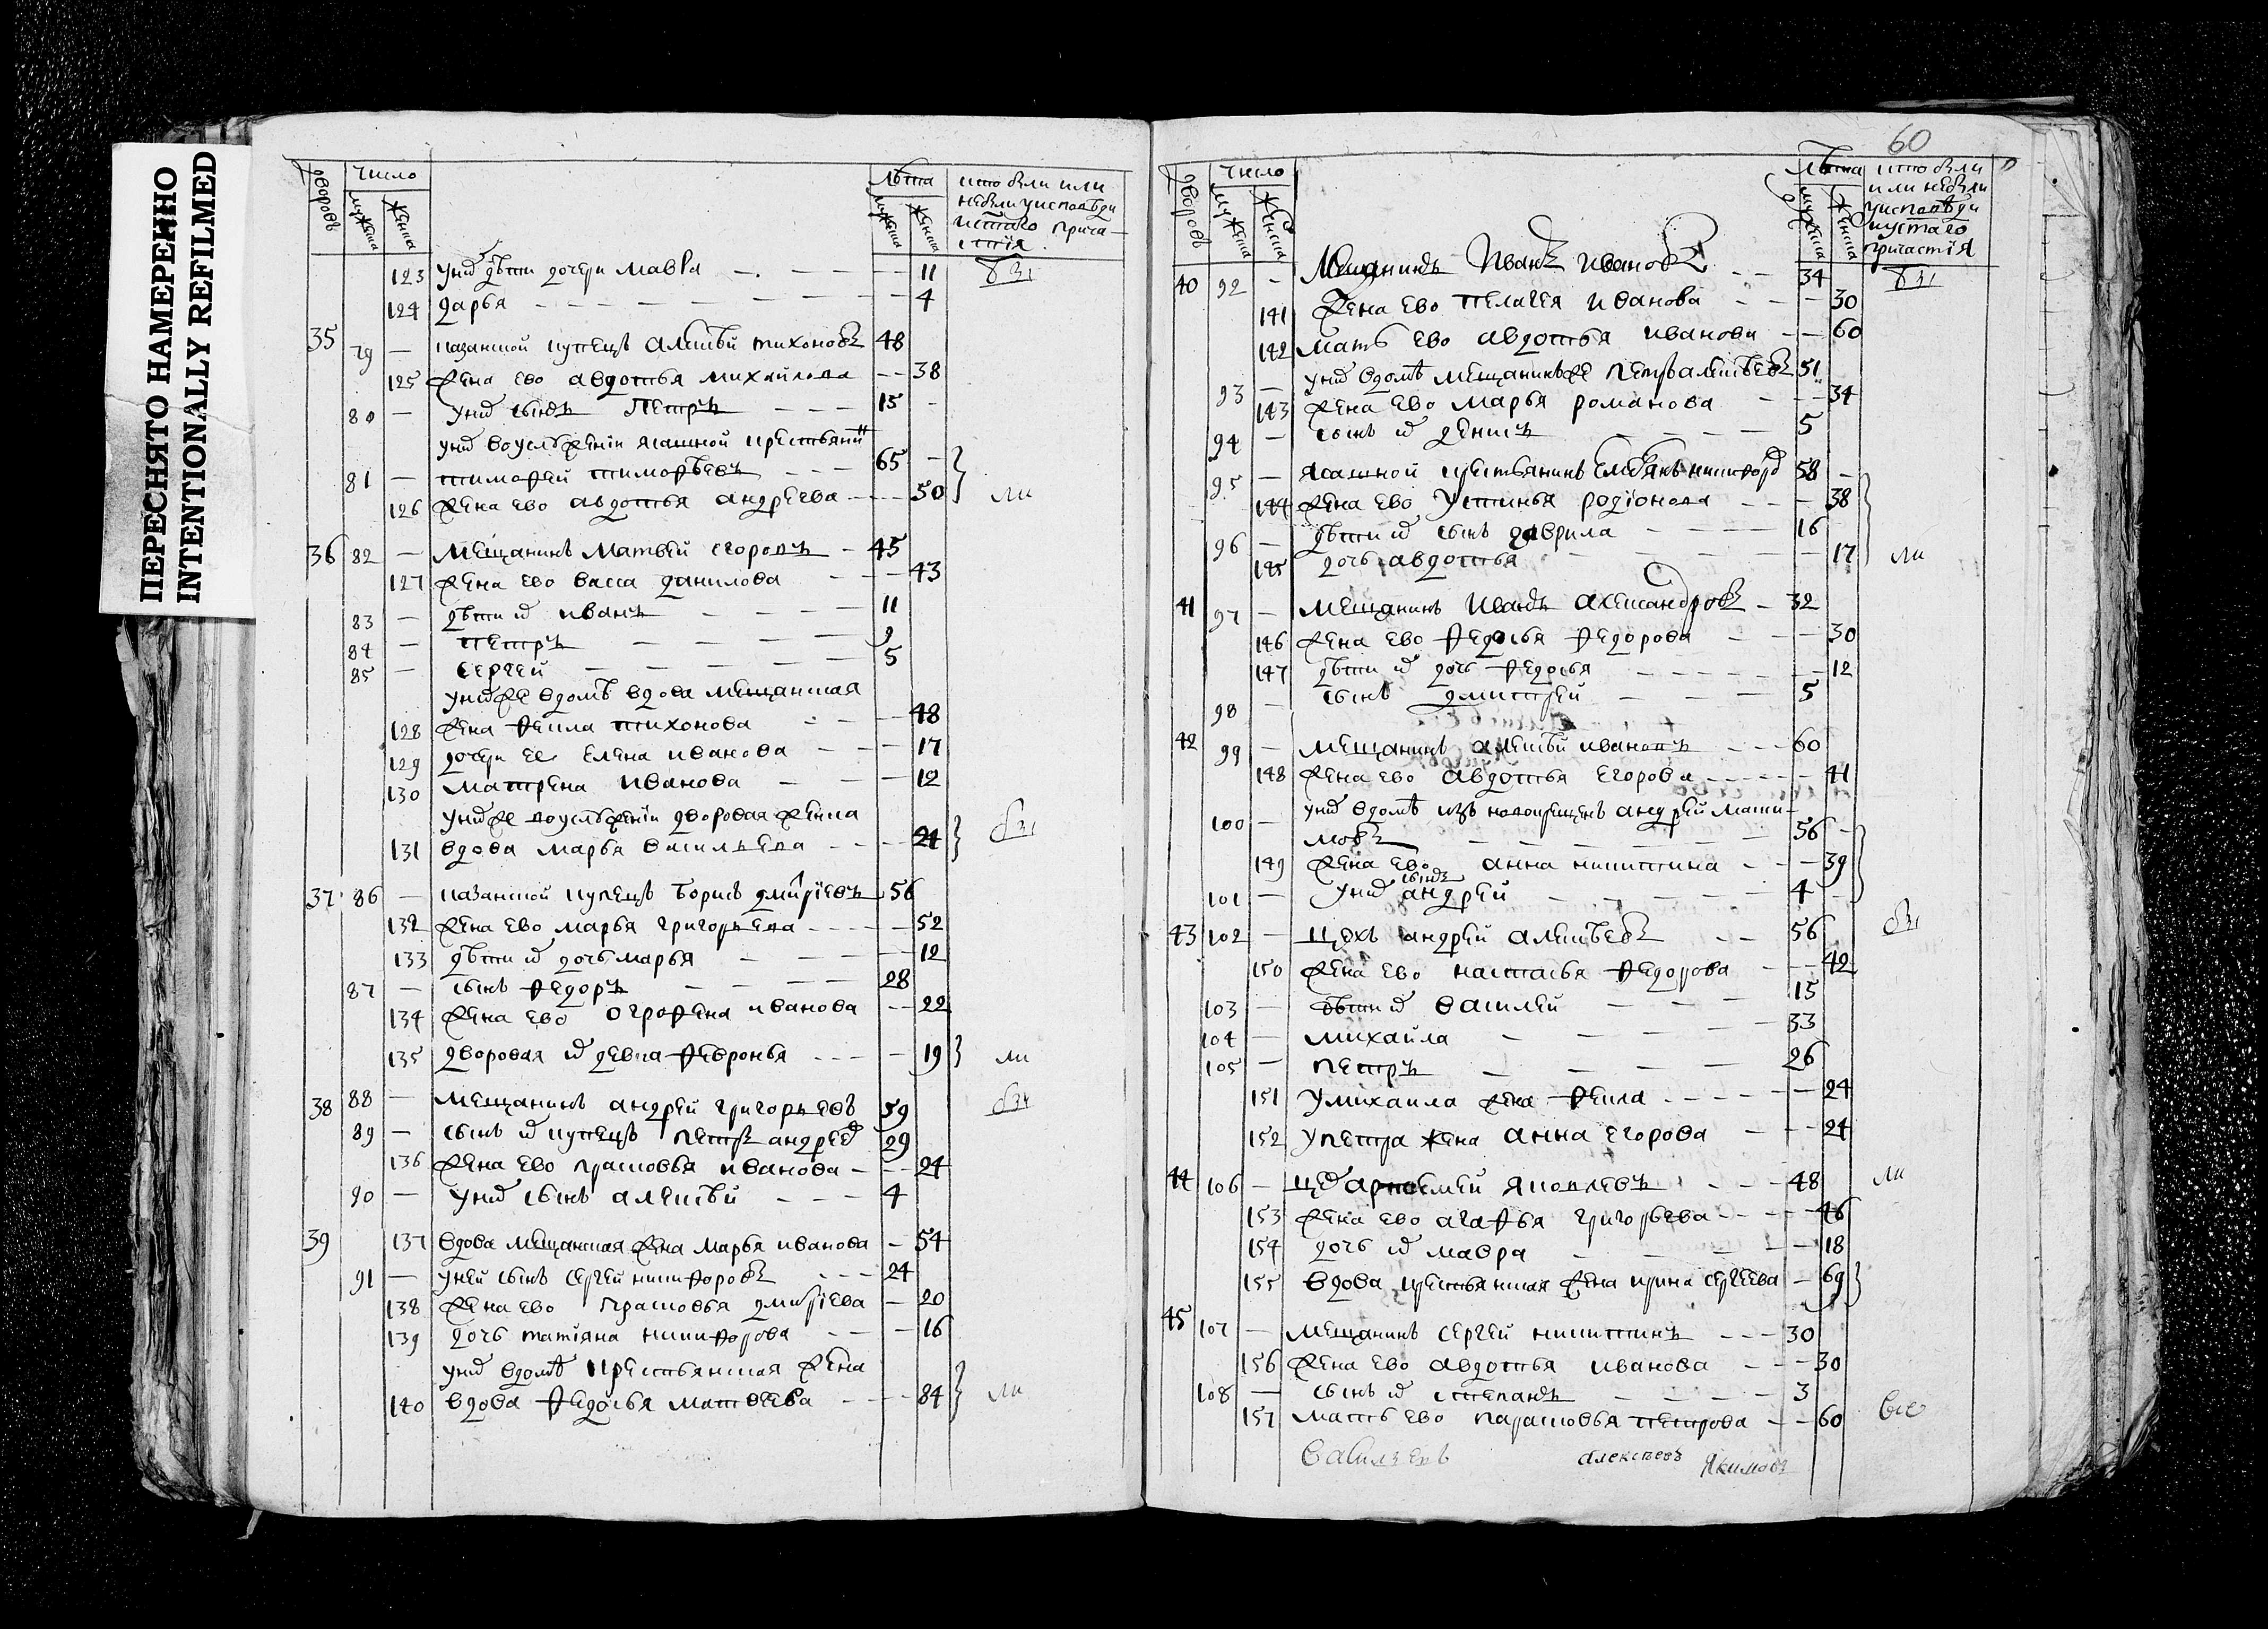 ПЕРЕСНЯТО НАМЕРЕННО
INTENTIONALLY REFILMED
дворовъ число мужеска женска лѣта мужеска женска кто были или
небыли у исповѣди
и святаго прича-
стия
123 у них дѣти дочери мавра 11
124 дарья 4
35 79 казанской купецъ алексѣй тихоновъ 48
125 жена ево авдотья михайлова 38
80 у них сынъ Петръ 15
у них во услужении ясашной крестьянин
81 тимофей тимофѣевъ 65
126 жена ево авдотья андреева 50
36 82 мещанинъ матвей егоровъ 45
127 жена ево васса данилова 43
83 дѣти их иванъ 11
84 петръ 9
85 сергей 5
у них же в домѣ вдова мещанская
128 жена фекла тихонова 48
129 дочери ее елена иванова 17
130 матрена иванова 12
у них же во услужении дворовая женка
131 вдова марья васильева 24
37 86 казанской купецъ борисъ дмитриевъ 56
132 жена ево марья григорьева 52
133 дѣти их дочь марья 12
87 сынъ федоръ 28
134 жена ево огрофена иванова 22
135 дворовая их девка февронья 19
38 88 мещанинъ андрей григорьевъ 59
89 сынъ их купецъ петръ андреев 29
136 жена ево прасковья иванова 24
90 у них сынъ алексѣй 4
39 137 вдова мещанская жена марья иванова 54
91 у ней сынъ сергей никифоровъ 24
138 жена ево прасковья дмитриева 20
139 дочь татіяна никифорова 16
у них в домѣ крестьянская жена
140 вдова федосья матвеева 84
60
дворовъ число мужеска женска лѣта мужеска женска кто были
или небыли
у исповѣди
и святаго
причастия
40 92 Мещанинъ Иванъ Ивановъ 34
141 жена ево пелагея иванова 30
142 мать ево авдотья иванова 60
93 у них в домѣ мещанинъ же петръ алексѣевъ 51
143 жена ево марья романова 34
94 сынъ их денисъ 5
95 ясашной крестьянинъ емельянъ никифоров 58
144 жена ево устинья родіонова 38
96 дѣти их сынъ гаврила 16
145 дочь авдотья 17
41 97 мещанинъ иванъ александровъ 32
146 жена ево федосья федорова 30
147 дѣти их дочь федосья 12
98 сынъ дмитрей 5
42 99 мещанинъ алексѣй ивановъ 60
148 жена ево авдотья егорова 41
100 у них в домѣ изъ новокрещенъ андрей макси-
мовъ 56
149 жена ево анна никитина 39
101 у них сынъ андрей 4
43 102 цехъ андрей алексѣевъ 56
150 жена ево настасья федорова 42
103 дѣти их василей 15
104 михайла 33
105 петръ 26
151 у михаила жена фекла 24
152 у петра жена анна егорова 24
44 106 цех артемей яковлевъ 48
153 жена ево агафья григорьева 46
154 дочь их мавра 18
155 вдова крестьянская жена ирина сергеева 69
45 107 мещанинъ сергей никитинъ 30
156 жена ево авдотья иванова 30
108 сынъ их степанъ 3
157 мать ево парасковья петрова 60
алексѣевъ Якимовъ